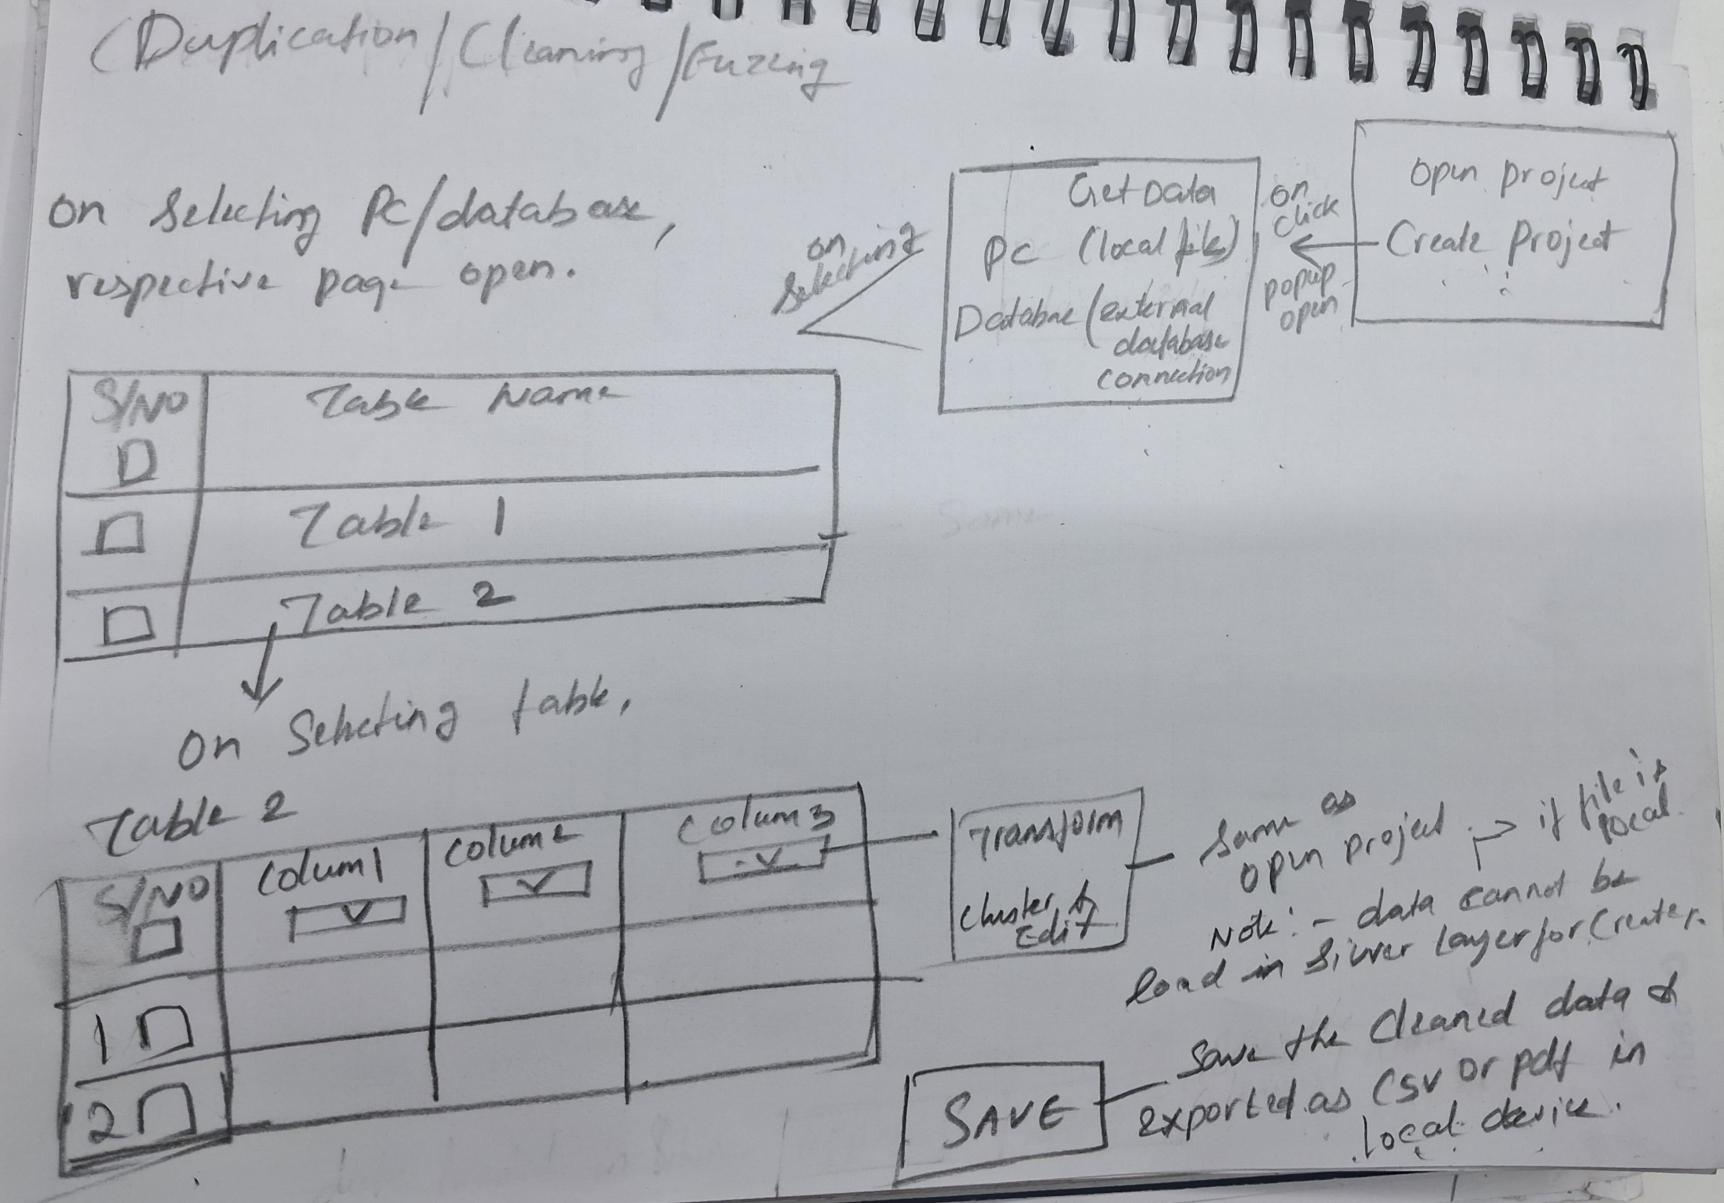 (Duplication/Cleaning/Fuzzing
On Selecting PC/database,
respective page open.
on
selecting
Get Data
PC (local files)
Database (external
database
connection
on
click
popup
open
Open project
Create Project
S/NO
Table Name
Table 1
Table 2
On Selecting table,
Table 2
S/NO
Colum1
Colum2
Colum3
1
2
Transform
Cluster &
Edit
Same as
open project
if file is
local.
Note:- data cannot be
load in Silver Layer for Create.
SAVE
Save the Cleaned data &
exported as CSV or pdf in
local device.